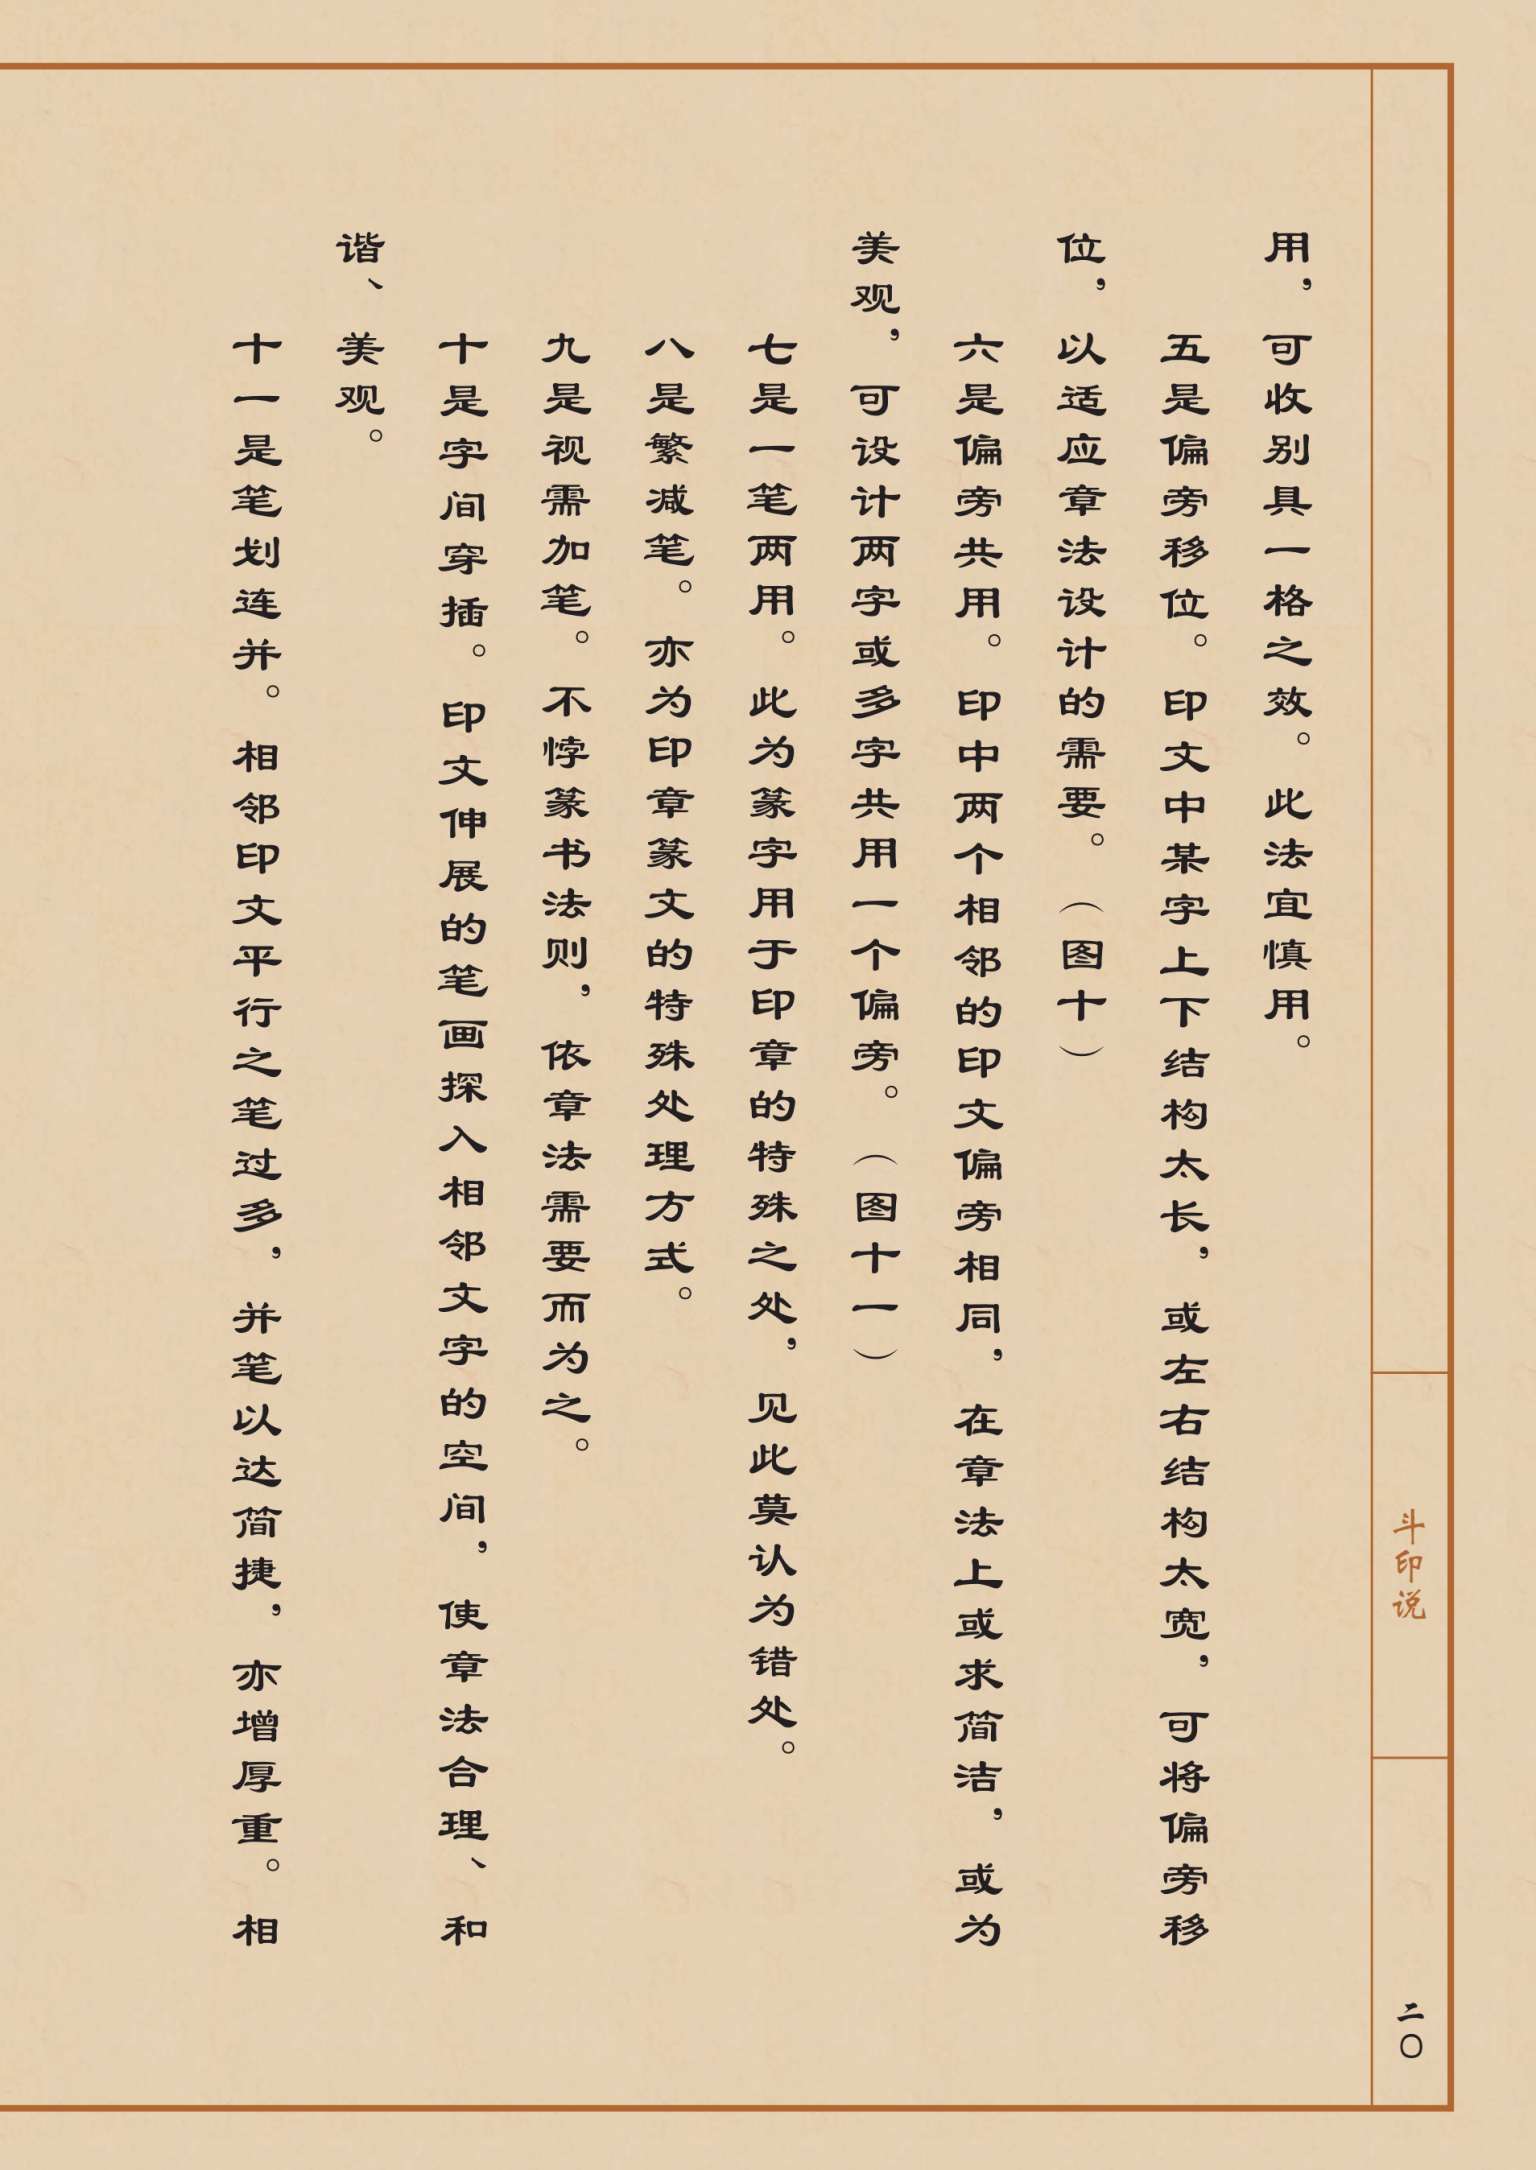 用，可收别具一格之效。此法宜慎用。
五是偏旁移位。印文中某字上下结构太长，或左右结构太宽，可将偏旁移
位，以适应章法设计的需要。（图十）
六是偏旁共用。印中两个相邻的印文偏旁相同，在章法上或求简洁，或为
美观，可设计两字或多字共用一个偏旁。（图十一）
七是一笔两用。此为篆字用于印章的特殊之处，见此莫认为错处。
八是繁减笔。亦为印章篆文的特殊处理方式。
九是视需加笔。不悖篆书法则，依章法需要而为之。
十是字间穿插。印文伸展的笔画探入相邻文字的空间，使章法合理、和
谐、美观。
十一是笔划连并。相邻印文平行之笔过多，并笔以达简捷，亦增厚重。相
斗印说
二〇